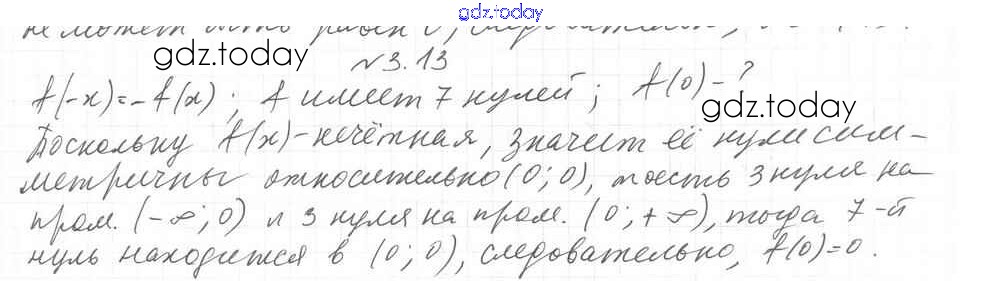 gdz.today
не может быть
gdz.today
№3.13
f(-x)=-f(x); f имеет 7 нулей; f(0)-?
gdz.today
Поскольку f(x)-нечётная, значит её нули сим-
метричны относительно (0;0), тоесть 3 нуля на
пром. (-∞;0) и 3 нуля на пром. (0;+∞), тогда 7-й
нуль находится в (0;0), следовательно, f(0)=0.